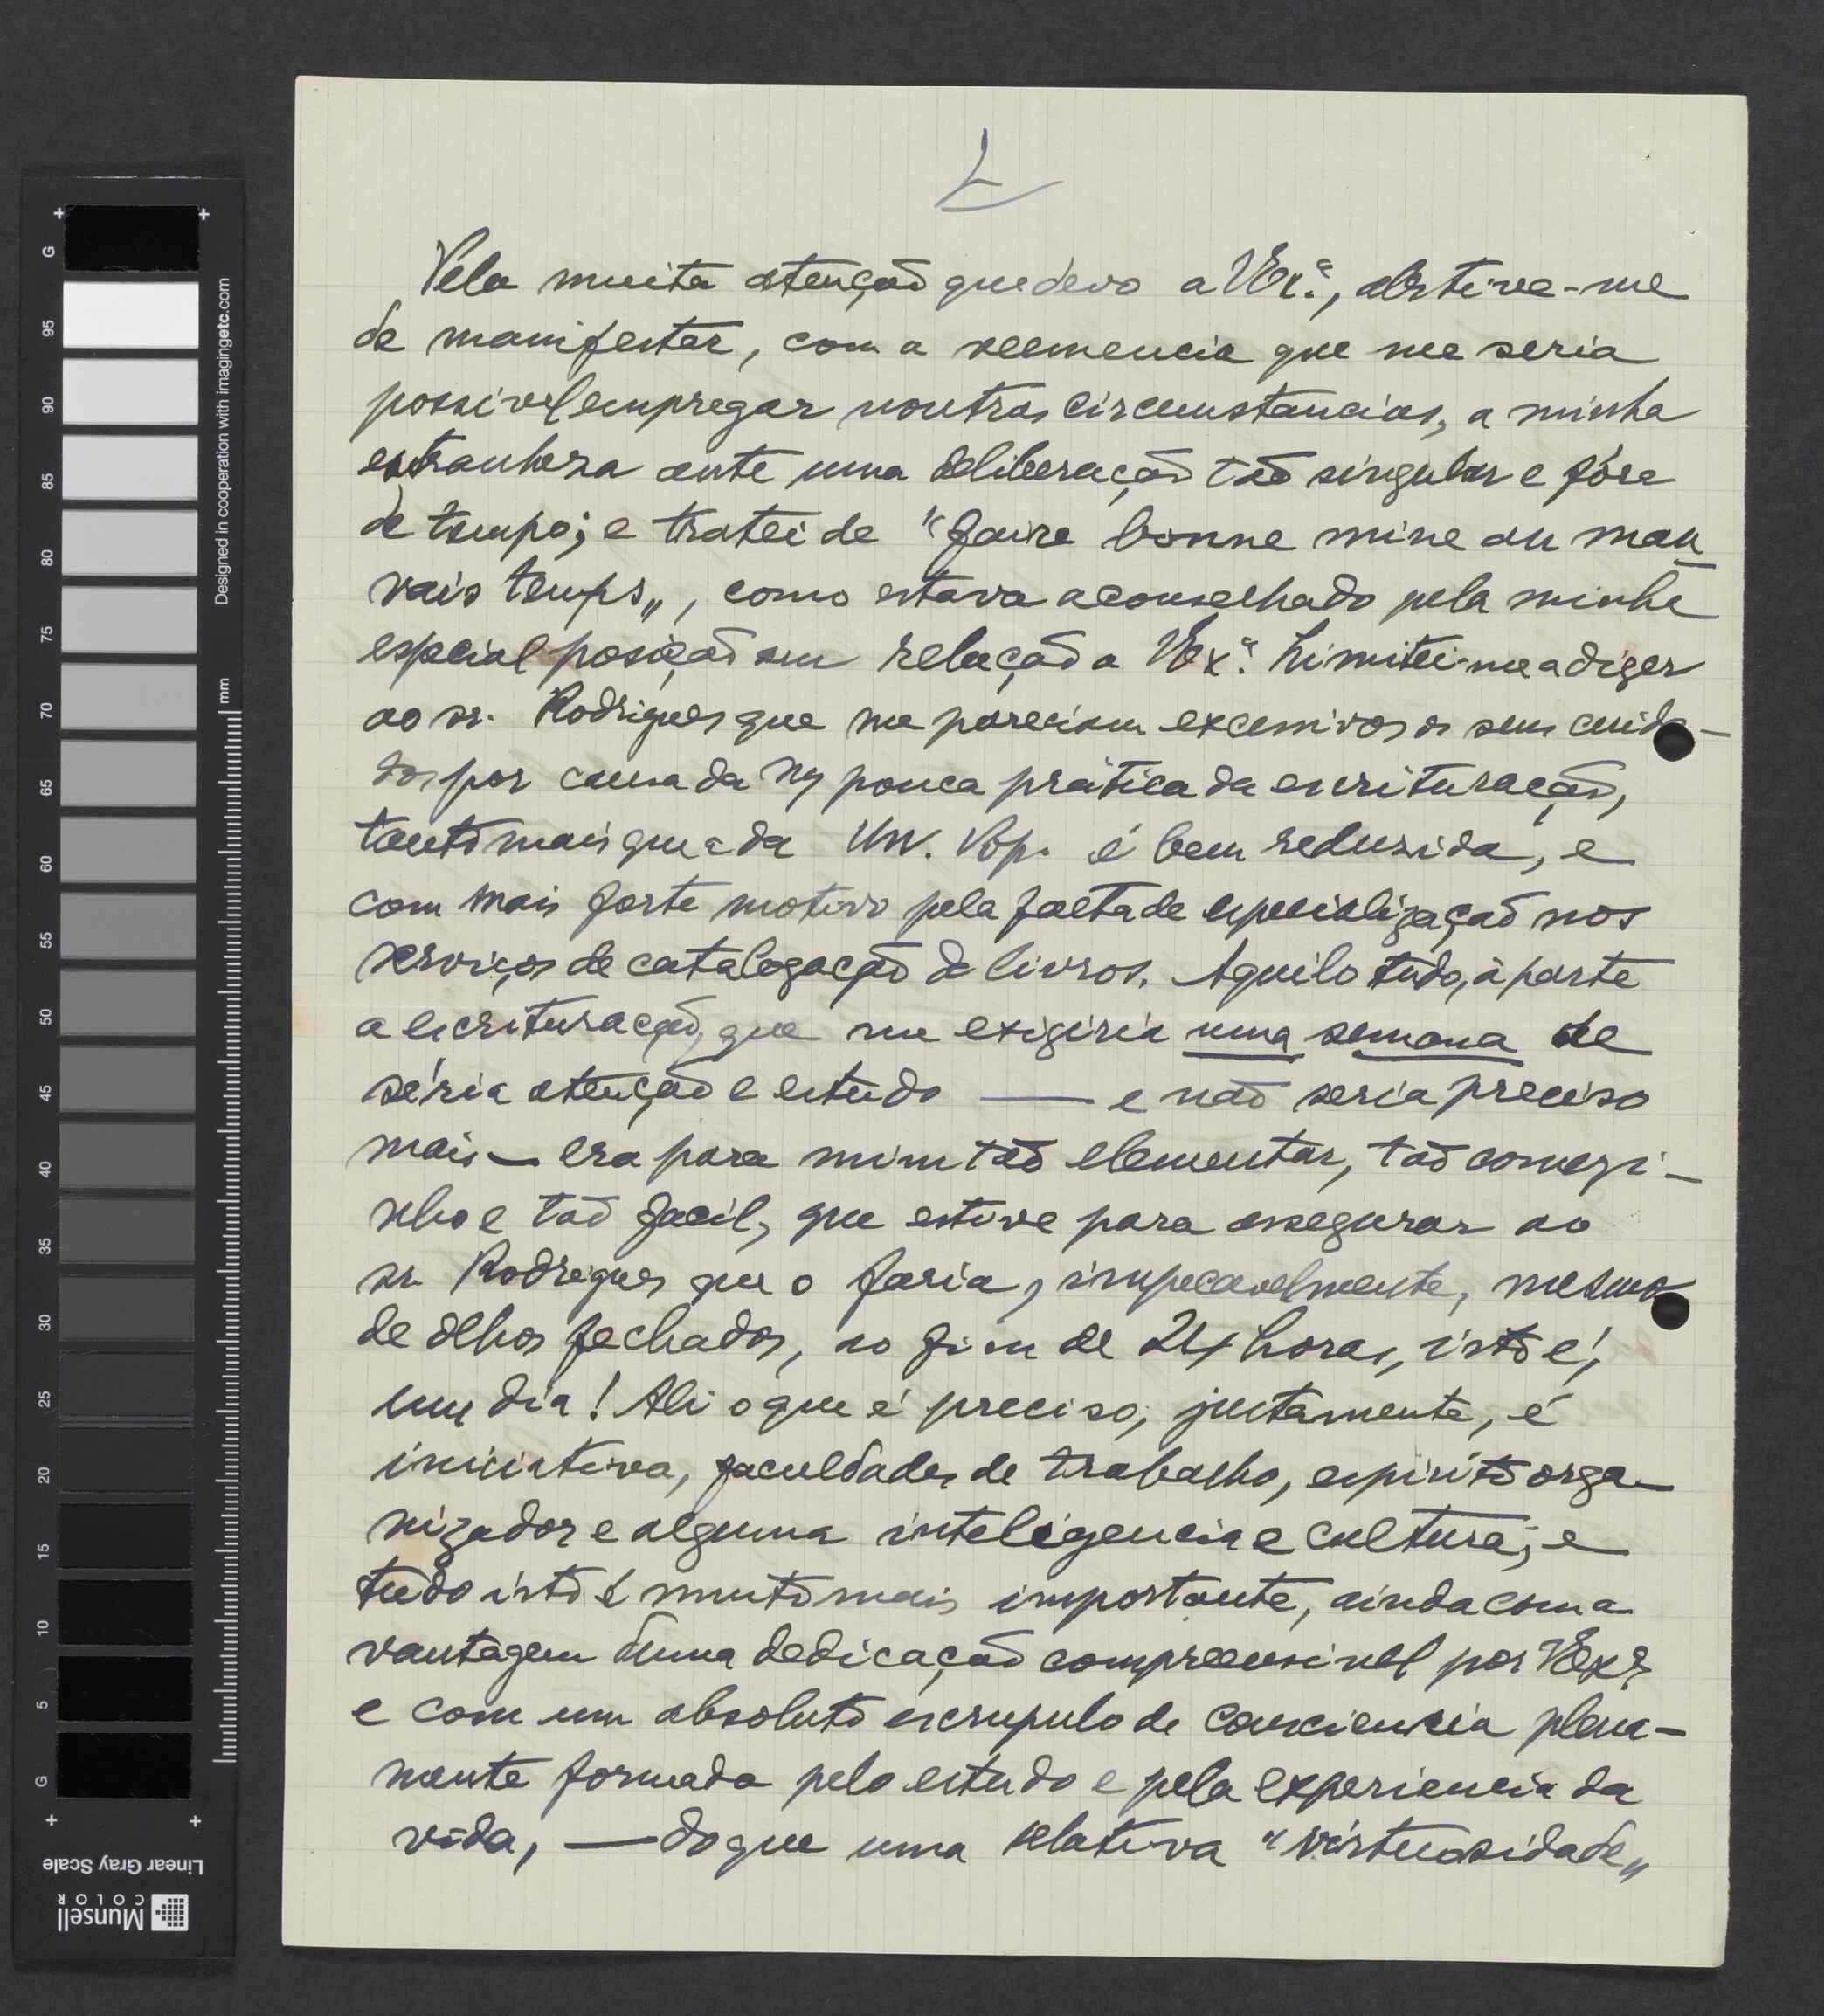 2
Pela muita atenção que devo a V. Ex.ª, abstive-me
de manifestar, com a veemencia que me seria
possivel empregar noutras circumstancias, a minha
estranheza ante uma deliberação tão singular e fóra
de tempo; e tratei de "faire bonne mine au mau
vais temps", como estava aconselhado pela minha
especial posição em relação a V. Ex.ª Limitei-me a dizer
ao sr. Rodrigues que me pareciam excessivos os seus cuida-
dos por causa da m/ pouca prática da escrituração,
tanto mais que a da Un. Pop. é bem reduzida, e
com mais forte motivo pela falta de especialização nos
serviços de catalogação de livros. Aquilo tudo, à parte
a escrituração, que me exigiria uma semana de
séria atenção e estudo — e não seria preciso
mais — era para mim tão elementar, tão comezi-
nho e tão facil, que estive para assegurar ao
sr. Rodrigues que o faria, impecavelmente, mesmo
de olhos fechados, ao fim de 24 horas, isto é,
um dia! Ali o que é preciso, justamente, é
iniciativa, faculdades de trabalho, espirito orga-
nizador e alguma inteligencia e cultura; e
tudo isto é muito mais importante, ainda com a
vantagem duma dedicação compreensivel por V. Ex.ª
e com um absoluto escrupulo de consciencia plena-
mente formada pelo estudo e pela experiencia da
vida, — do que uma relativa "virtuosidade"
Designed in cooperation with imagingetc.com
mm
G
95
90
85
80
75
70
65
60
55
50
45
40
35
30
25
20
15
10
5
G
Linear Gray Scale
Munsell
COLOR